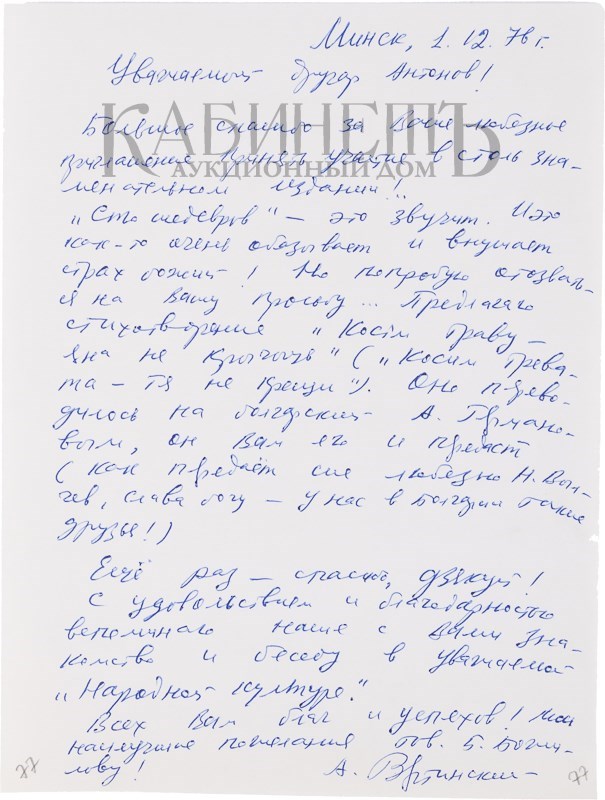 Минск, 1.12.76 г.
Уважаемый другар Антонов!
КАБИНЕТЪ
АУКЦИОННЫЙ ДОМ
Большое спасибо за Ваше любезное
приглашение принять участие в столь зна-
менательном издании!..
„Сто шедевров“ — это звучит. И это
как-то очень обязывает и внушает
страх божий! Но попробую отозвать-
ся на Вашу просьбу... Предлагаю
стихотворение „Косiм траву —
яна не крычыць“ („Косим трева-
та — тя не крещи“). Оно перево-
дилось на болгарский А. Германо-
вым, он Вам его и предаст
(как предаёт сие любезно Н. Выл-
чев, слава богу — у нас в Болгарии такие
друзья!)
Ещё раз — спасибо, дзякуй!
С удовольствием и благодарностью
вспоминаю наше с Вами зна-
комство и беседу в уважаемой
„Народной культуре.“
Всех Вам благ и успехов! Мои
наилучшие пожелания тов. Б. Божи-
лову!
А. Вертинский
77
77